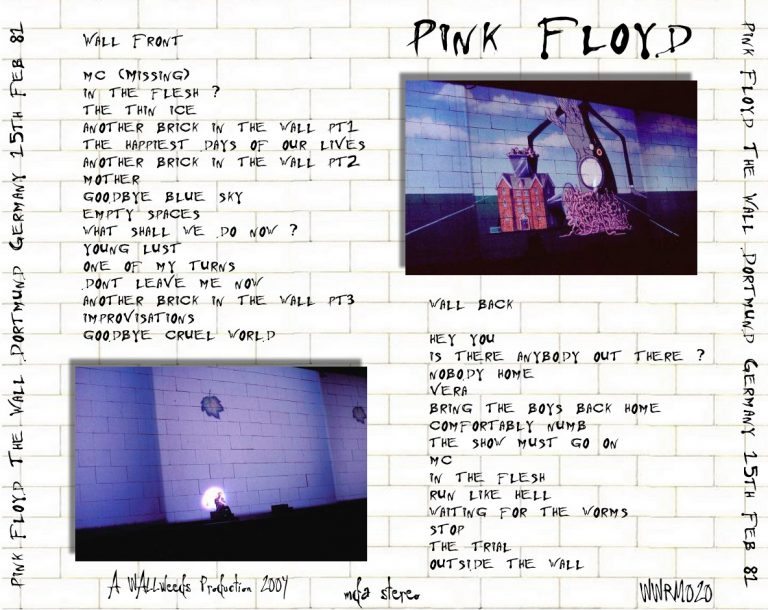 Pink Floyd The Wall Dortmund Germany 15th Feb 81
Wall Front
MC (Missing)
In The Flesh ?
The Thin Ice
Another Brick In The Wall Pt1
The Happiest Days Of Our Lives
Another Brick In The Wall Pt2
Mother
Goodbye Blue Sky
Empty Spaces
What Shall We Do Now ?
Young Lust
One Of My Turns
Dont Leave Me Now
Another Brick In The Wall Pt3
Improvisations
Goodbye Cruel World
Pink Floyd
Wall Back
Hey You
Is There Anybody Out There ?
Nobody Home
Vera
Bring The Boys Back Home
Comfortably Numb
The Show Must Go On
MC
In The Flesh
Run Like Hell
Waiting For The Worms
Stop
The Trial
Outside The Wall
A WALLWeeds Production 2004
mdfa stereo
WWRM020
Pink Floyd The Wall Dortmund Germany 15th Feb 81